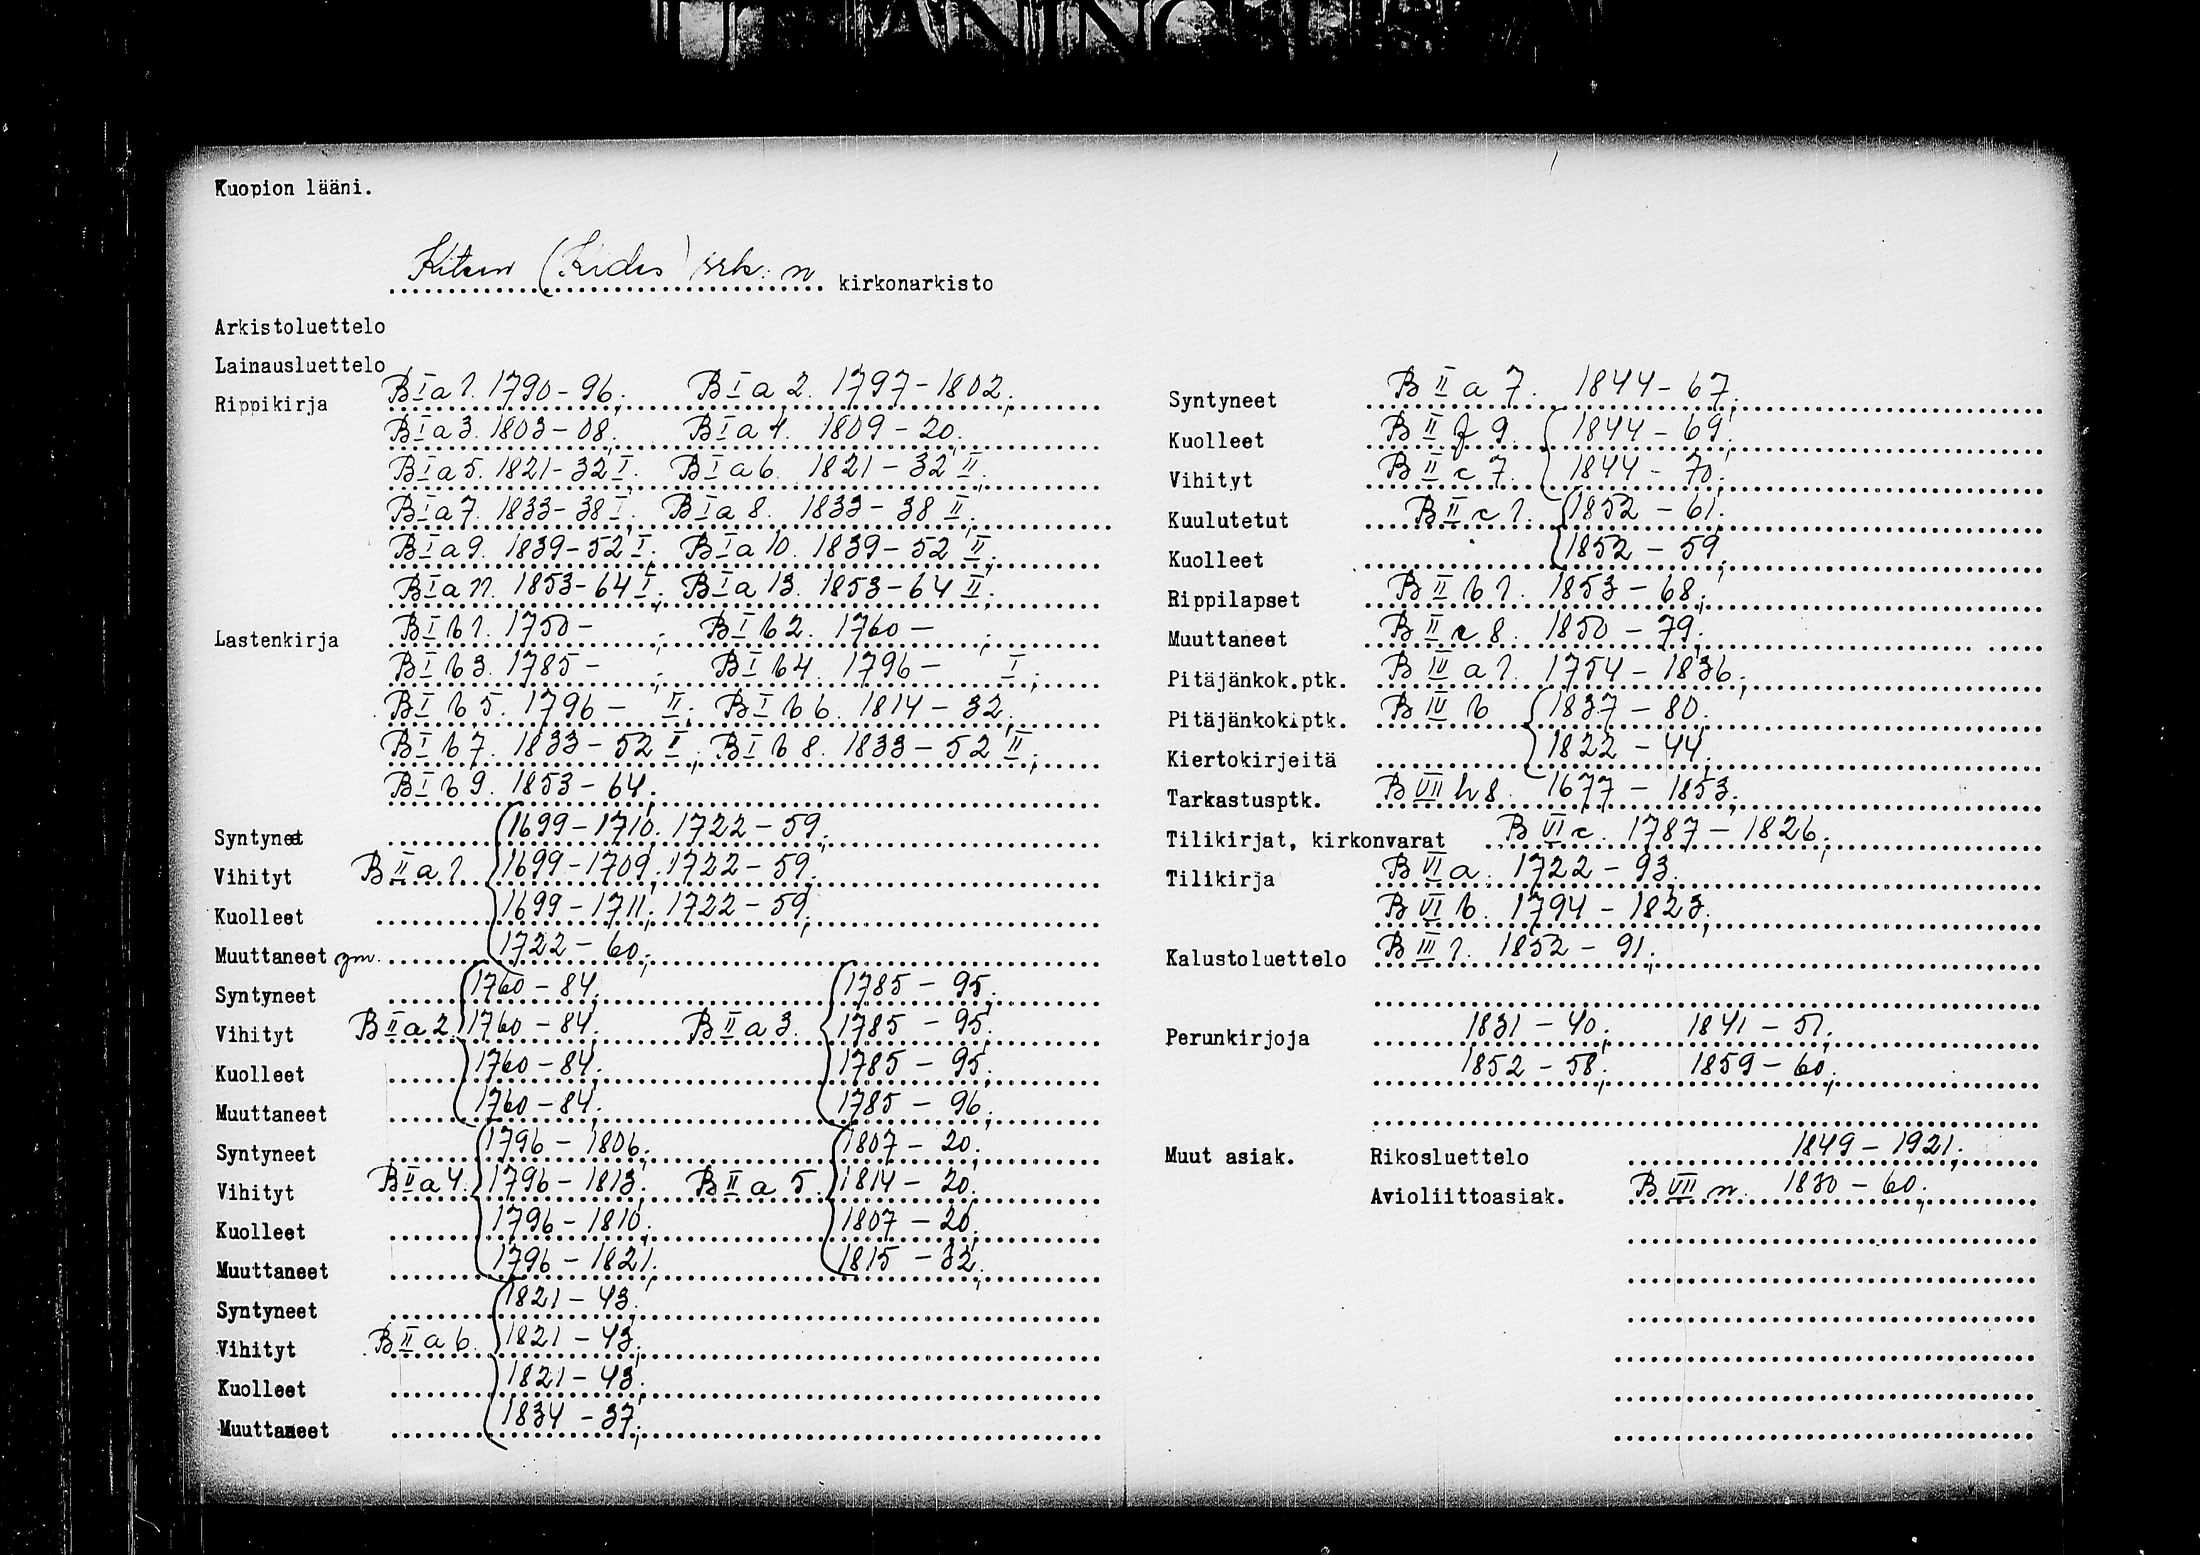 Kuopion lääni.
Kiteen (Kides) srk:n kirkonarkisto
Arkistoluettelo
Lainausluettelo
Rippikirja B I a 1. 1790-96; B I a 2. 1797-1802;
B I a 3. 1803-08; B I a 4. 1809-20;
B I a 5. 1821-32 I; B I a 6. 1821-32 II;
B I a 7. 1833-38 I; B I a 8. 1833-38 II;
B I a 9. 1839-52 I; B I a 10. 1839-52 II;
B I a 11. 1853-64 I; B I a 13. 1853-64 II;
Lastenkirja B I b 1. 1750- ; B I b 2. 1760- ;
B I b 3. 1785- ; B I b 4. 1796- I;
B I b 5. 1796- II; B I b 6. 1814-32;
B I b 7. 1833-52 I; B I b 8. 1833-52 II;
B I b 9. 1853-64;
Syntyneet 1699-1710; 1722-59;
Vihityt B II a 1 1699-1709; 1722-59;
Kuolleet 1699-1711; 1722-59;
Muuttaneet ym. 1722-60;
Syntyneet 1760-84; 1785-95;
Vihityt B II a 2 1760-84; B II a 3. 1785-95;
Kuolleet 1760-84; 1785-95;
Muuttaneet 1760-84; 1785-96;
Syntyneet 1796-1806; 1807-20;
Vihityt B II a 4. 1796-1813; B II a 5. 1814-20;
Kuolleet 1796-1810; 1807-20;
Muuttaneet 1796-1821; 1815-32;
Syntyneet 1821-43;
Vihityt B II a 6. 1821-43;
Kuolleet 1821-43;
Muuttaneet 1834-37;
Syntyneet B II a 7. 1844-67;
Kuolleet B II f 9. 1844-69;
Vihityt B II c 7. 1844-70;
Kuulutetut B II c 1. 1852-61;
Kuolleet 1852-59;
Rippilapset B II b 1. 1853-68;
Muuttaneet B II c 8. 1850-79;
Pitäjänkok.ptk. B IV a 1. 1754-1836;
Pitäjänkok.ptk. B IV b 1837-80;
Kiertokirjeitä 1822-44;
Tarkastusptk. B VII h 8. 1677-1853;
Tilikirjat, kirkonvarat B VI c. 1787-1826;
Tilikirja B VI a. 1722-93;
B VI b. 1794-1823;
Kalustoluettelo B III 1. 1852-91;
Perunkirjoja 1831-40; 1841-51;
1852-58; 1859-60;
Muut asiak. Rikosluettelo 1849-1921;
Avioliittoasiak. B VII n. 1830-60;